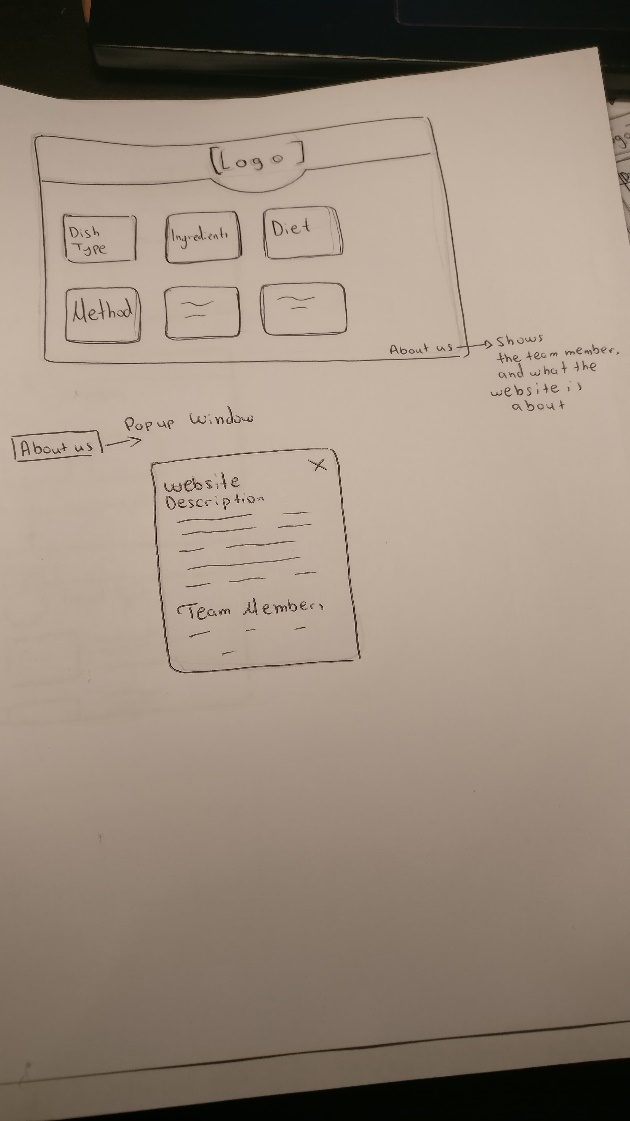 [Logo]
Dish
Type
Ingredients
Diet
Method
About us
Shows
the team member,
and what the
website is
about
About us
Popup Window
X
Website
Description
Team Members